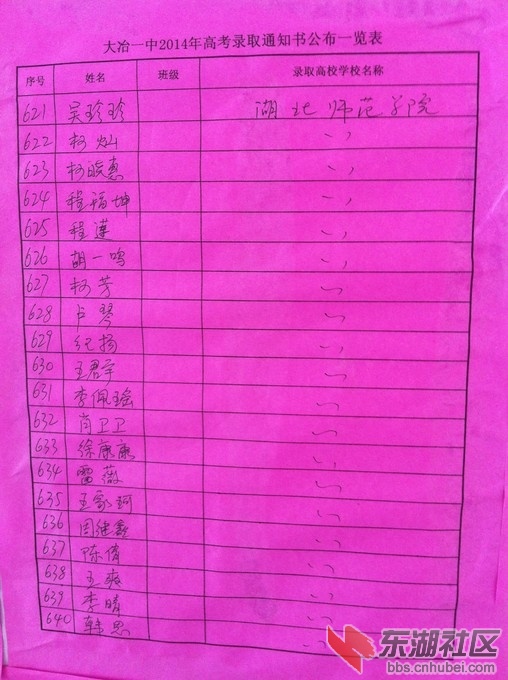 大冶一中2014年高考录取通知书公布一览表
序号 姓名 班级 录取高校学校名称
621 吴珍珍 湖北师范学院
622 柯灿 〃
623 柯晓惠 〃
624 程福坤 〃
625 程莲 〃
626 胡一鸣 〃
627 柯芳 〃
628 卢琴 〃
629 纪扬 〃
630 王君宇 〃
631 李佩瑶 〃
632 肖卫卫 〃
633 徐康康 〃
634 雷薇 〃
635 王家珂 〃
636 周继鑫 〃
637 陈倩 〃
638 王爽 〃
639 李晴 〃
640 韩思 〃
东湖社区
bbs.cnhubei.com